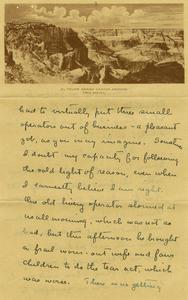 EL TOVAR GRAND CANYON ARIZONA
had to virtually put three small
operators out of business - a pleasant
job, as you may imagine. Sometimes
I doubt my capacity for following
the cold light of reason, even when
I earnestly believe I am right.
One old living operator stormed at
us all morning, which was not so
bad, but this afternoon he brought
a frail worn-out wife and fairs
children to do the tear act, which
was worse. There is no getting